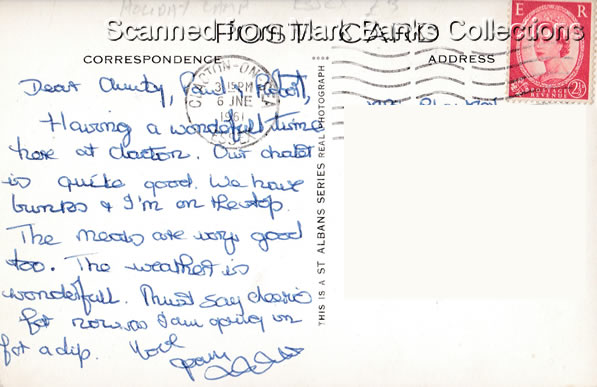 HOLIDAY CAMP ESSEX £3
Scanned from Mark Parks Collections
POST CARD
CORRESPONDENCE
ADDRESS
E R
POSTAGE REVENUE
2½D
CLACTON-ON-SEA
3 15PM
6 JNE
1961
ESSEX
Dear Aunty, Paul & Robert,
Having a wonderfull time
here at clacton. Our chalet
is quite good. We have
bunks & I'm on the top.
The meals are very good
too. The weather is
wonderfull. Must say cheerio
for now as I am going in
for a dip. Love
Pam
THIS IS A ST ALBANS SERIES REAL PHOTOGRAPH